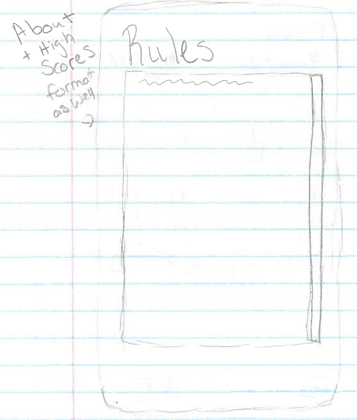 About
+ High
Scores
format
as well
Rules